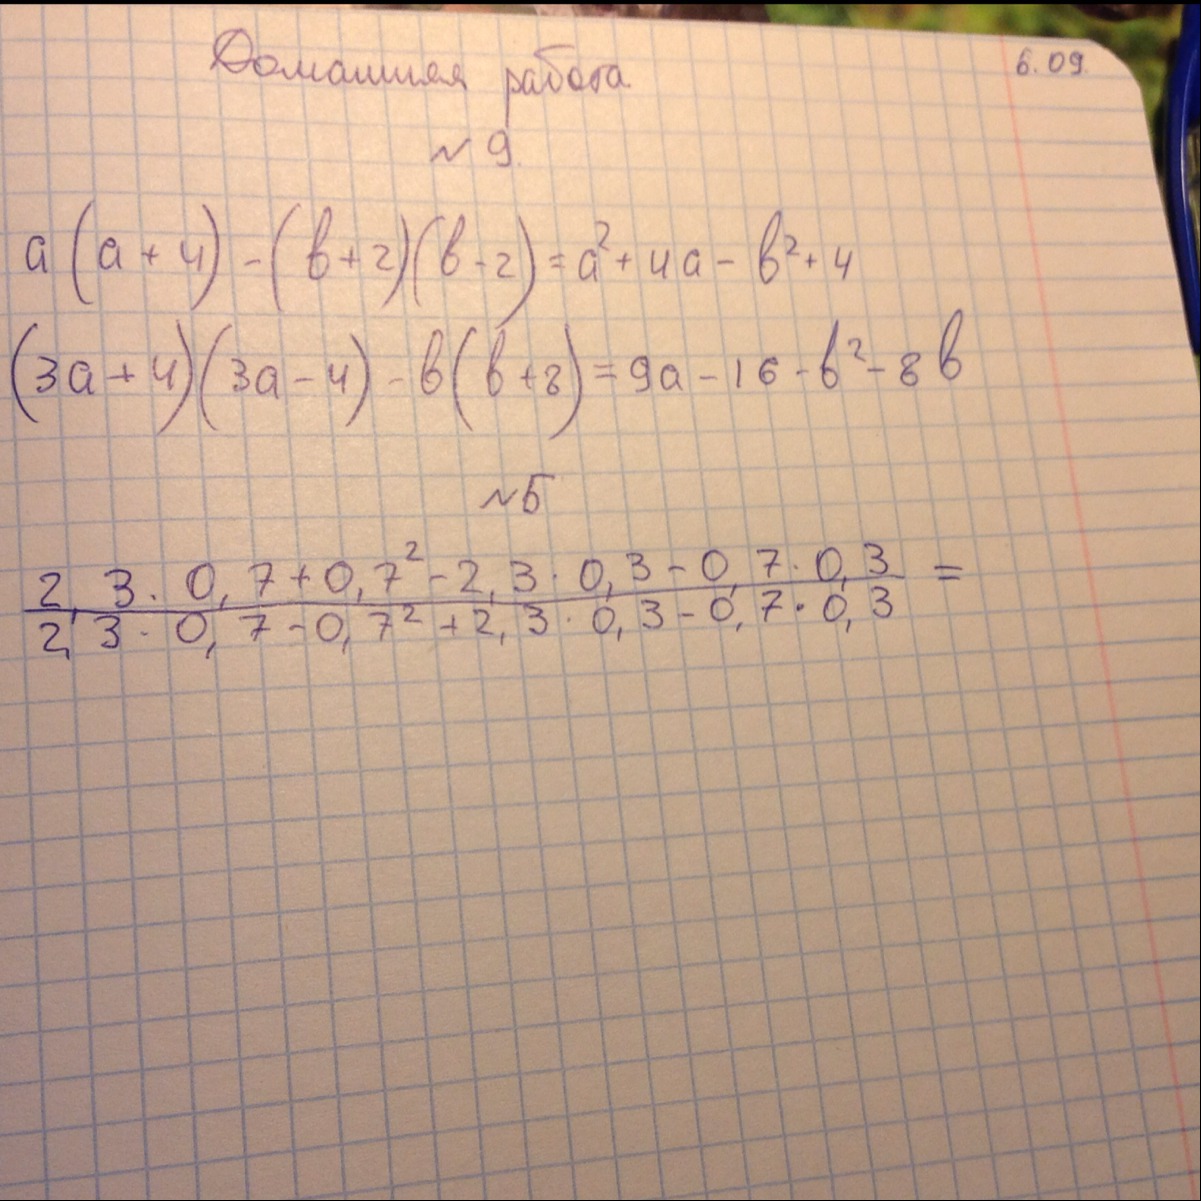 Домашняя работа 6.09.
№ 9.
а(а+4)-(в+2)(в-2)=а²+4а-в²+4
(3а+4)(3а-4)-в(в+8)=9а-16-в²-8в
№5
2,3·0,7+0,7²-2,3·0,3-0,7·0,3 =
2,3·0,7-0,7²+2,3·0,3-0,7·0,3